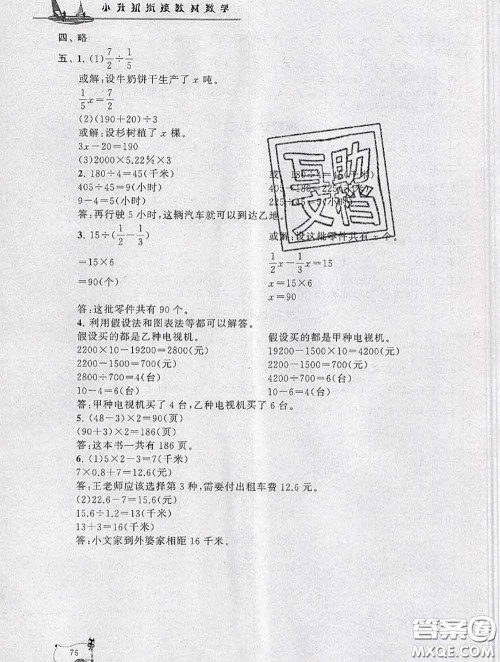 小升初衔接教材数学
四、略
五、1. (1) 7/2 ÷ 1/5
或解:设牛奶饼干生产了 x 吨。
1/5 x = 7/2
(2)(190+20)÷3
或解:设杉树植了 x 棵。
3x-20=190
(3)2000×5.22%×3
3. 180÷4=45(千米) 或 180÷4=45(千米)
405÷45=9(小时) 405-180=225(千米)
9-4=5(小时) 225÷45=5(小时)
答:再行驶 5 小时,这辆汽车就可以到达乙地。
3. 15÷(1/2-1/3) 或解:设这批零件共有 x 个。
=15×6 1/2 x - 1/3 x = 15
=90(个) x=90
答:这批零件共有 90 个。
4. 利用假设法和图表法等都可以解答。
假设买的都是乙种电视机。 假设买的都是甲种电视机。
2200×10-19200=2800(元) 19200-1500×10=4200(元)
2200-1500=700(元) 2200-1500=700(元)
2800÷700=4(台) 4200÷700=6(台)
10-4=6(台) 10-6=4(台)
答:甲种电视机买了 4 台,乙种电视机买了 6 台。
5. (48-3)×2=90(页)
(90+3)×2=186(页)
答:这本书一共有 186 页。
6. (1)5+2=7(千米)
7×0.8+7=12.6(元)
答:王老师应该选择第 3 种,需要付出租车费 12.6 元。
(2)22.6-7=15.6(元)
15.6÷1.2=13(千米)
13+3=16(千米)
答:小文家到外婆家相距 16 千米。
互助
文档
76
答案圈
MXQE.COM